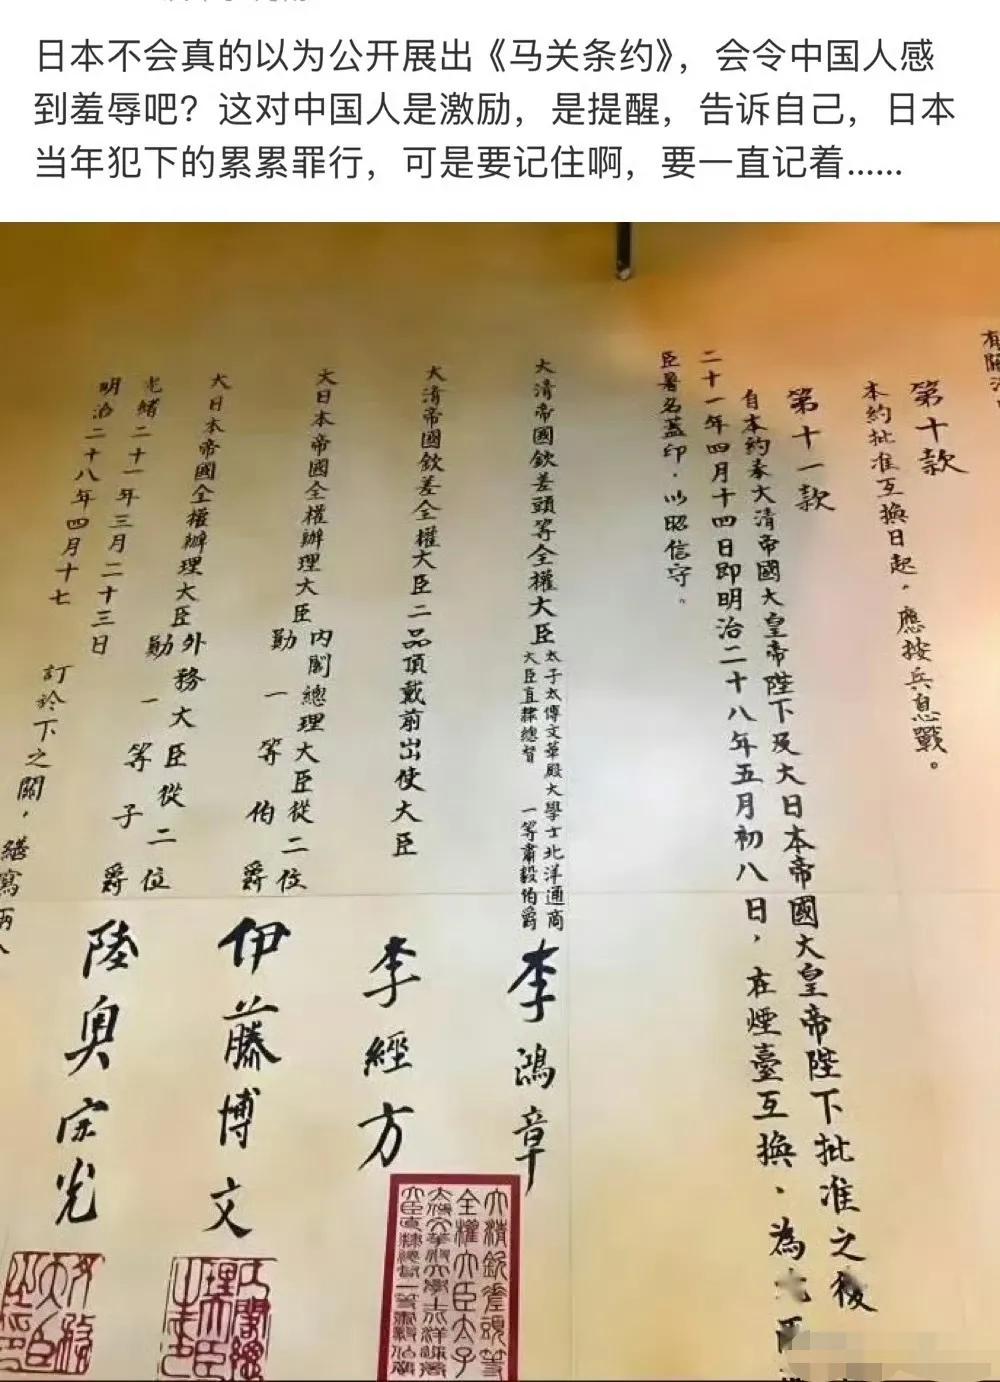 日本不会真的以为公开展出《马关条约》，会令中国人感
到羞辱吧？这对中国人是激励，是提醒，告诉自己，日本
当年犯下的累累罪行，可是要记住啊，要一直记着……
第十款
本約批准互換日起，應按兵息戰。
第十一款
自本約奉大清帝國大皇帝陛下及大日本帝國大皇帝陛下批准之後
二十一年四月十四日即明治二十八年五月初八日，在煙臺互換，為
臣署名蓋印，以昭信守。
大清帝國欽差頭等全權大臣太子太傅文華殿大學士北洋通商
大臣直隸總督一等肅毅伯爵李鴻章
大清帝國欽差全權大臣二品頂戴前出使大臣李經方
大日本帝國全權辦理大臣內閣總理大臣從二位
勳一等伯爵伊藤博文
大日本帝國全權辦理大臣外務大臣從二位
勳一等子爵陸奧宗光
光緒二十一年三月二十三日
明治二十八年四月十七
訂於下之關，繕寫兩
大清欽差頭等
全權大臣太子
太傅文華殿大學士北洋通商
大臣直隸總督一等肅毅伯爵